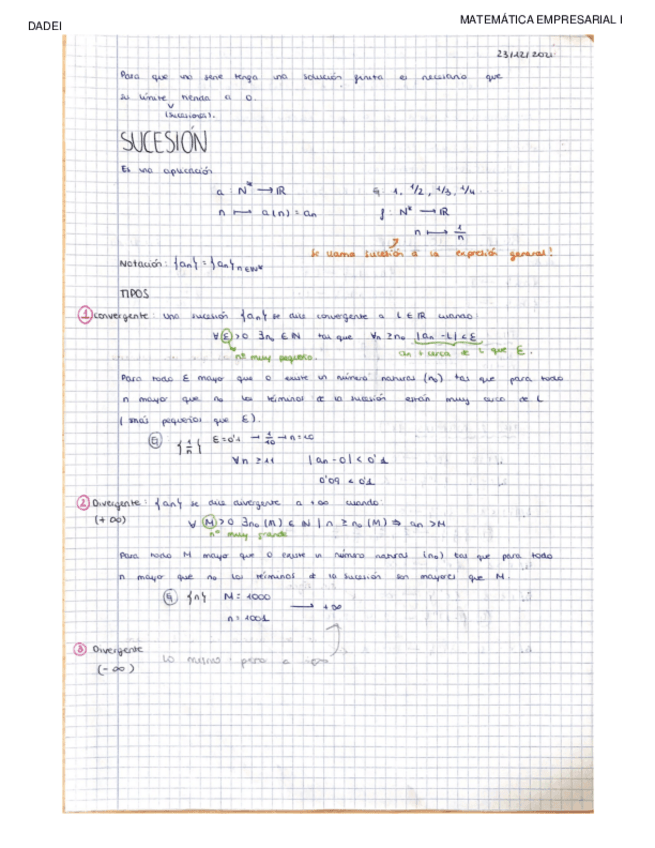 DADEI
MATEMÁTICA EMPRESARIAL I
23/12/2021
Para que una serie tenga una solución finita es necesario que
su límite tienda a 0.
(sucesiones).
SUCESIÓN
Es una aplicación
a : N* → R
n ⟼ a(n) = an
Ej: 1, 1/2, 1/3, 1/4
f : N* → R
n ⟼ 1/n
Se llama sucesión a la expresión general!
Notación: {an} = {an} n∈N*
TIPOS
① Convergente: Una sucesión {an} se dice convergente a L ∈ R cuando:
∀ε>0 ∃n₀ ∈ N tas que ∀n ≥ n₀ |an - L| < ε
nº muy pequeño.
an + cerca de L que ε.
Para todo ε mayor que 0 existe un número natural (n₀) tas que para todo
n mayor que n₀ los términos de la sucesión están muy cerca de L
(más pequeños que ε).
Ej {1/n} ε=0'1 → 1/10 → n=10
∀n ≥ 11 |an - 0| < 0'1
0'09 < 0'1
② Divergente: {an} se dice divergente a +∞ cuando:
(+∞)
∀ M>0 ∃n₀ (M) ∈ N | n ≥ n₀ (M) ⇒ an > M
nº muy grande
Para todo M mayor que 0 existe un número natural (n₀) tas que para todo
n mayor que n₀ los términos de la sucesión son mayores que M.
Ej {n} M = 1000 → +∞
n = 1001
③ Divergente
(-∞)
Lo mismo pero a -∞